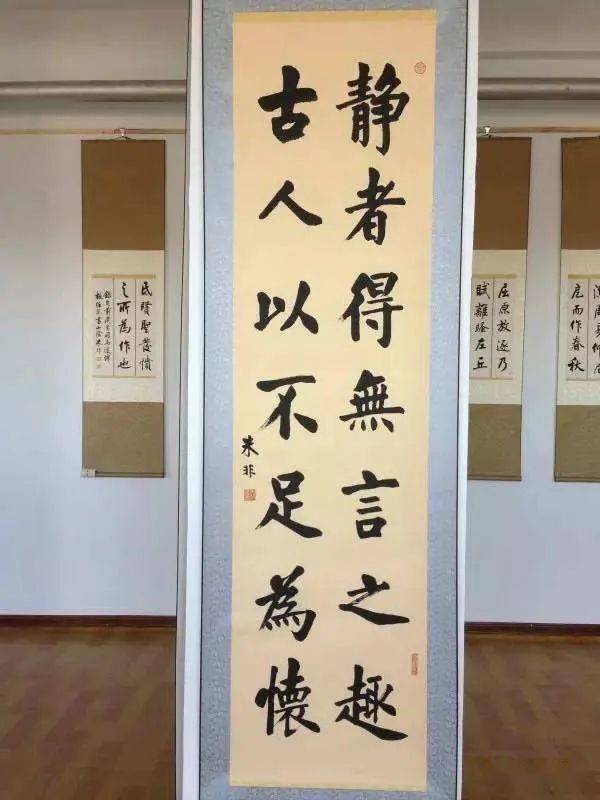 静者得無言之趣
古人以不足為懷
朱非
屈原放逐乃
賦離騷左丘
民賢聖發憤
之所為作也
厄而作春秋